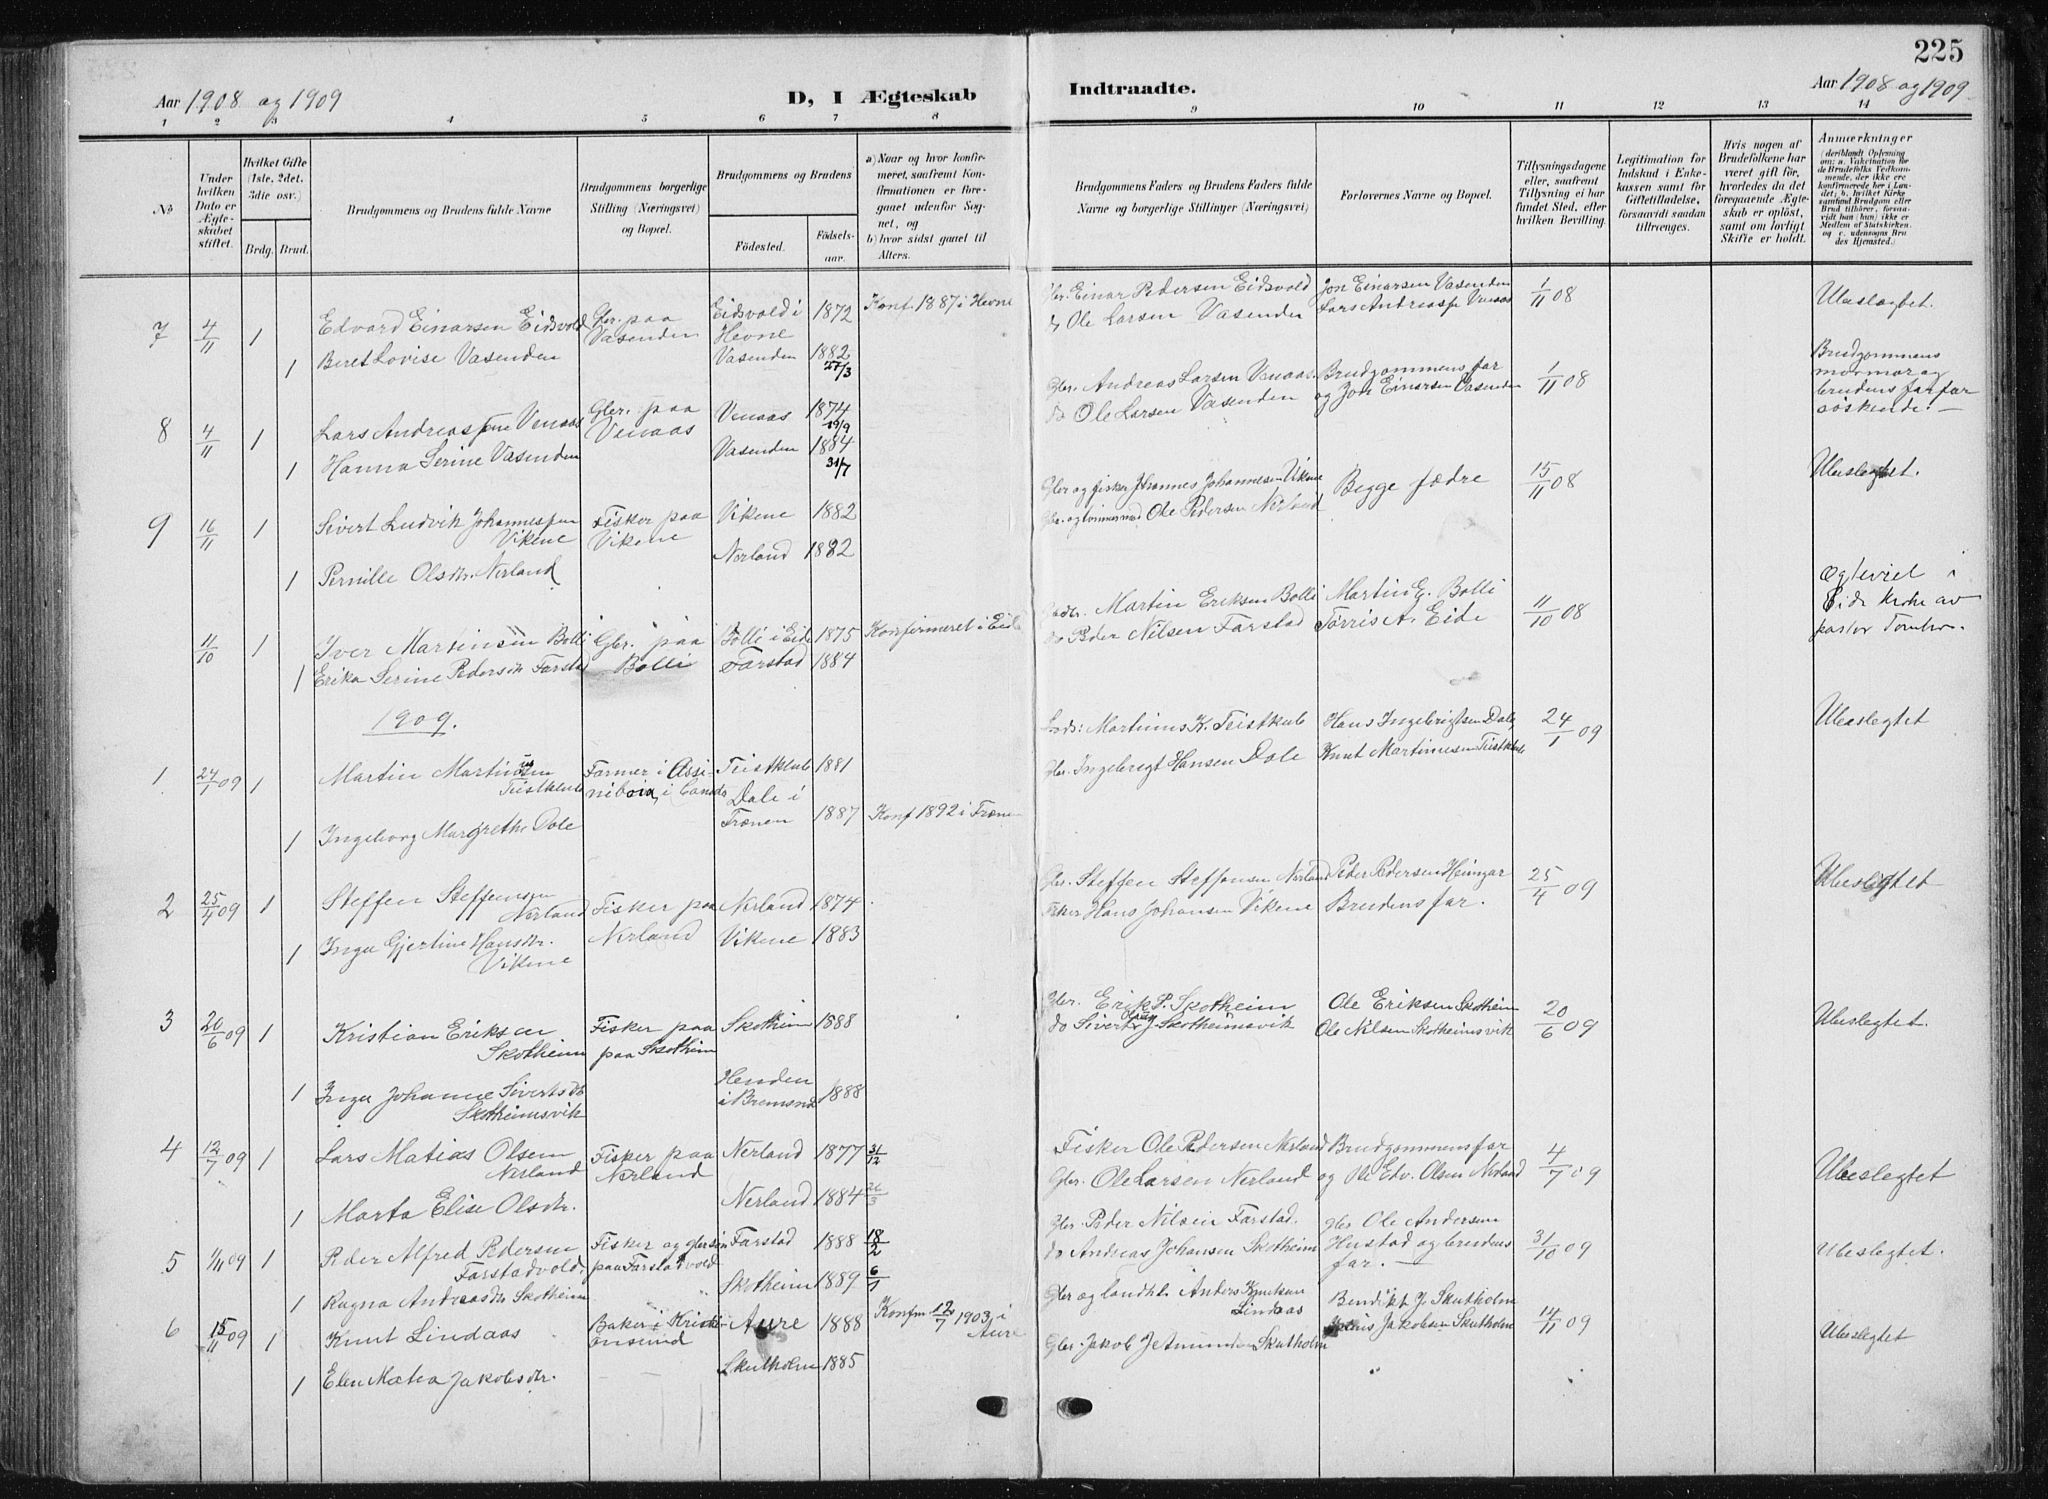 225
Aar 1908 og 1909
D, I Ægteskab Indtraadte.
Aar 1908 og 1909
1 2 3 4 5 6 7 8 9 10 11 12 13 14
No
Under hvilken Dato er Ægteskabet stiftet.
Hvilket Gifte (1ste, 2det, 3die osv.)
Brdg. Brud.
Brudgommens og Brudens fulde Navne
Brudgommens borgerlige Stilling (Næringsvei) og Bopæl.
Brudgommens og Brudens
Fødested. Fødselsaar.
a) Naar og hvor konfirmeret, saafremt Konfirmationen er foregaaet udenfor Sognet, og
b) hvor sidst gaaet til Alters.
Brudgommens Faders og Brudens Faders fulde Navne og borgerlige Stillinger (Næringsvei)
Forlovernes Navne og Bopæl.
Tillysningsdagene eller, saafremt Tillysning ei har fundet Sted, efter hvilken Bevilling.
Legitimation for Indskud i Enkekassen samt for Giftetilladelse, forsaavidt saadan tiltrænges.
Hvis nogen af Brudefolkene har været gift før, hvorledes da det foregaaende Ægteskab er opløst, samt om lovligt Skifte er holdt.
Anmærkninger
(deriblandt Oplysning om: a. Vakcination for de Brudefolks Vedkommende, der ikke ere konfirmerede her i Landet; b. hvilket Kirkesamfund Brudgom eller Brud tilhører, forsaavidt han (hun) ikke er Medlem af Statskirken, og c. udensogns Brudes Hjemsted.)
7 4/11 1 Edvard Einarsen Eidsvold Gbr. paa Vasenden Eidsvold i Hevne 1872 Konf. 1887 i Hevne Gbr. Einar Pedersen Eidsvold Jon Einarsen Vasenden 1/11 08 Ubeslægtet.
1 Beret Lovise Vasenden Vasenden 1882 27/3 do Ole Larsen Vasenden Lars Andreassen Venaas
8 4/11 1 Lars Andreassen Venaas Gbr. paa Venaas Venaas 1874 19/9 Gbr. Andreas Larsen Venaas. Brudgommens far 1/11 08 Brudgommens mormor og brudens farfar söskende. —
1 Hanna Serine Vasenden Vasenden 1884 31/7 do Ole Larsen Vasenden og Jon Einarsen Vasenden
9 16/11 1 Sivert Ludvik Johannessen Vikene Fisker paa Vikene Vikene 1882 Gbr og fisker Johannes Johannesen Vikene Begge fædre 15/11 08 Ubeslegtet.
1 Pernille Olsdtr. Nerland Nerland 1882 Gbr. og tømmermand Ole Pedersen Nerland
11/10 1 Iver Martinsen Bolli Gbr. paa Bolli Bolli i Eide 1875 Konfirmeret i Eide Gbr. Martin Eriksen Bolli Martin E. Bolli 11/10 08 Ogteviet i Eide kirke av pastor
1 Erika Serine Pedersdtr Farstad Farstad 1884 do Peder Nilsen Farstad Torris A. Eide
1909.
1 24/1 09 1 Martin Martinusen Teistklub Farmer i Assiniboia, i Canada Teistklub 1881 Martinus K. Teistklub Hans Ingebrigtsen Dale 24/1 09 Ubeslegtet
1 Ingeborg Margrethe Dale Dale i Frænen 1887 Konf 1892 i Frænen Gbr. Ingebrigt Hansen Dale Knut Martinusen Teistklub
2 25/4 09 1 Steffen Steffensen Nerland Fisker paa Nerland Nerland 1874 Gbr. Steffen Steffensen Nerland Peder Pedersen 25/4 09 Ubeslegtet
1 Inga Gjertine Hansdtr. Vikene Vikene 1883 Fisker Hans Johansen Vikene Brudens far.
3 20/6 09 1 Kristian Eriksen Skotheim Fisker paa paa Skotheim Skotheim 1888 Gbr. Erik P. Skotheim Ole Eriksen Skotheim 20/6 09 Ubeslegtet.
1 Inga Johanne Sivertsdtr Skotheimsvik Henden i Bremsnes 1888 do Sivert J. Skotheimsvik Ole Nilsen Skotheimsvik
4 12/7 09 1 Lars Matias Olsen Nerland Fisker paa Nerland Nerland 1877 31/12 Fisker Ole Pedersen Nerland Brudgommens far 4/7 09 Ubeslegtet
1 Marta Elise Olsdtr. Nerland 1884 26/3 Gbr. Ole Larsen Nerland og Ole Edv. Olsen Nerland
5 1/11 09 1 Peder Alfred Pedersen Farstadvold. Fisker og gbrsøn paa Farstadvold Farstad 1888 18/2 Gbr. Peder Nilsen Farstad. gbr Ole Andersen Hustad og brudens far. — 31/10 09 Ubeslegtet.
1 Ragna Andreasdtr Skotheim Skotheim 1889 6/1 do Andreas Johansen Skotheim
6 15/11 09 1 Knut Lindaas Baker i Kristiansund Aure 1888 Konfm 12/7 1903 i Aure Gbr og landh. Anders Knutsen Lindaas Bendikt J. Skutholm 14/11 09 Ubeslegtet
1 Elen Matea Jakobsdtr. Skutholm 1885 Gbr. Jakob J Amundsen Skutholm Jakobsen Skutholm